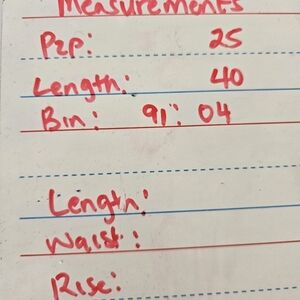 Measurements
P2P: 25
Length: 40
Bin: 91: 04
Length:
Waist:
Rise: